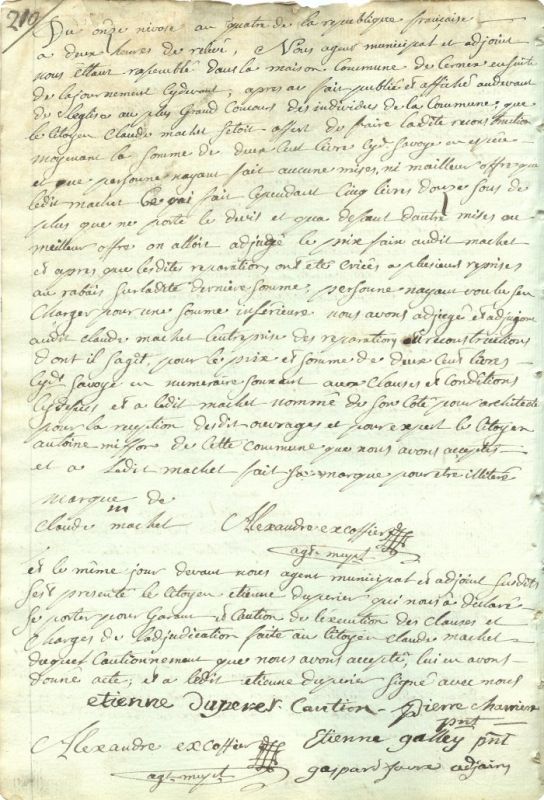 219
Du onze nivose an quatre de la republique française
a deux heures de relevé, Nous agent municipal et adjoint
nous étant rassemblé dans la maison Commune de Cernex ensuite
de lajournement cydevant, apres avoir fait publié et affiché audevant
de l'eglise au plus Grand Concours des individus de la Commune, que
le Citoyen Claude machet setoit offert de faire ladite reconstruction
moyenant la somme de deux Cent livre cyd.t Savoye en espèce
et que personne nayant fait aucune mises, ni mailleur offre que
ledit machet fait cependant Cinq livres douze sous de
plus que ne porte le devit et qua defaut dautre mises ou
meilleur offre on alloit adjugé le prix fain audit machet
et apres que lesdite reparations ont été criées a plusieurs reprises
au rabais sur ladite derniere somme, personne nayant voulu sen
charger pour une somme inferieure nous avons adjugé et adjugeons
audit claude machet lentreprise des reparations et reconstructions
dont il sagit, pour le prix et somme de deux Cent livres
cyd.t Savoye en numeraire sonnant aux Clauses et Conditions
cydessus, et a ledit machet nommé de son Coté pour architecte
pour la reception desdit ouvrages et pour expert le Citoyen
antoine de Cette Commune que nous avons accepté
et a Ledit machet fait sa marque pour etre illiteré
marque de
m
claude machet Alexandre excoffier
agt. mupt
et le même jour devant nous agent municipal et adjoint susdits
sest presenté le Citoyen etienne duperier qui nous a declaré
se porter pour Garant et Caution de lexecution des clauses et
Charges de Ladjudication faite au Citoyen claude machet
duquel Cautionnement que nous avons accepté, lui en avons
donné acte, et a ledit etienne duperier signé avec nous
etienne Duperer Caution - pierre
pnt
Alexandre excoffier Etienne galley pnt
agt. mupt gaspard favre adjoin